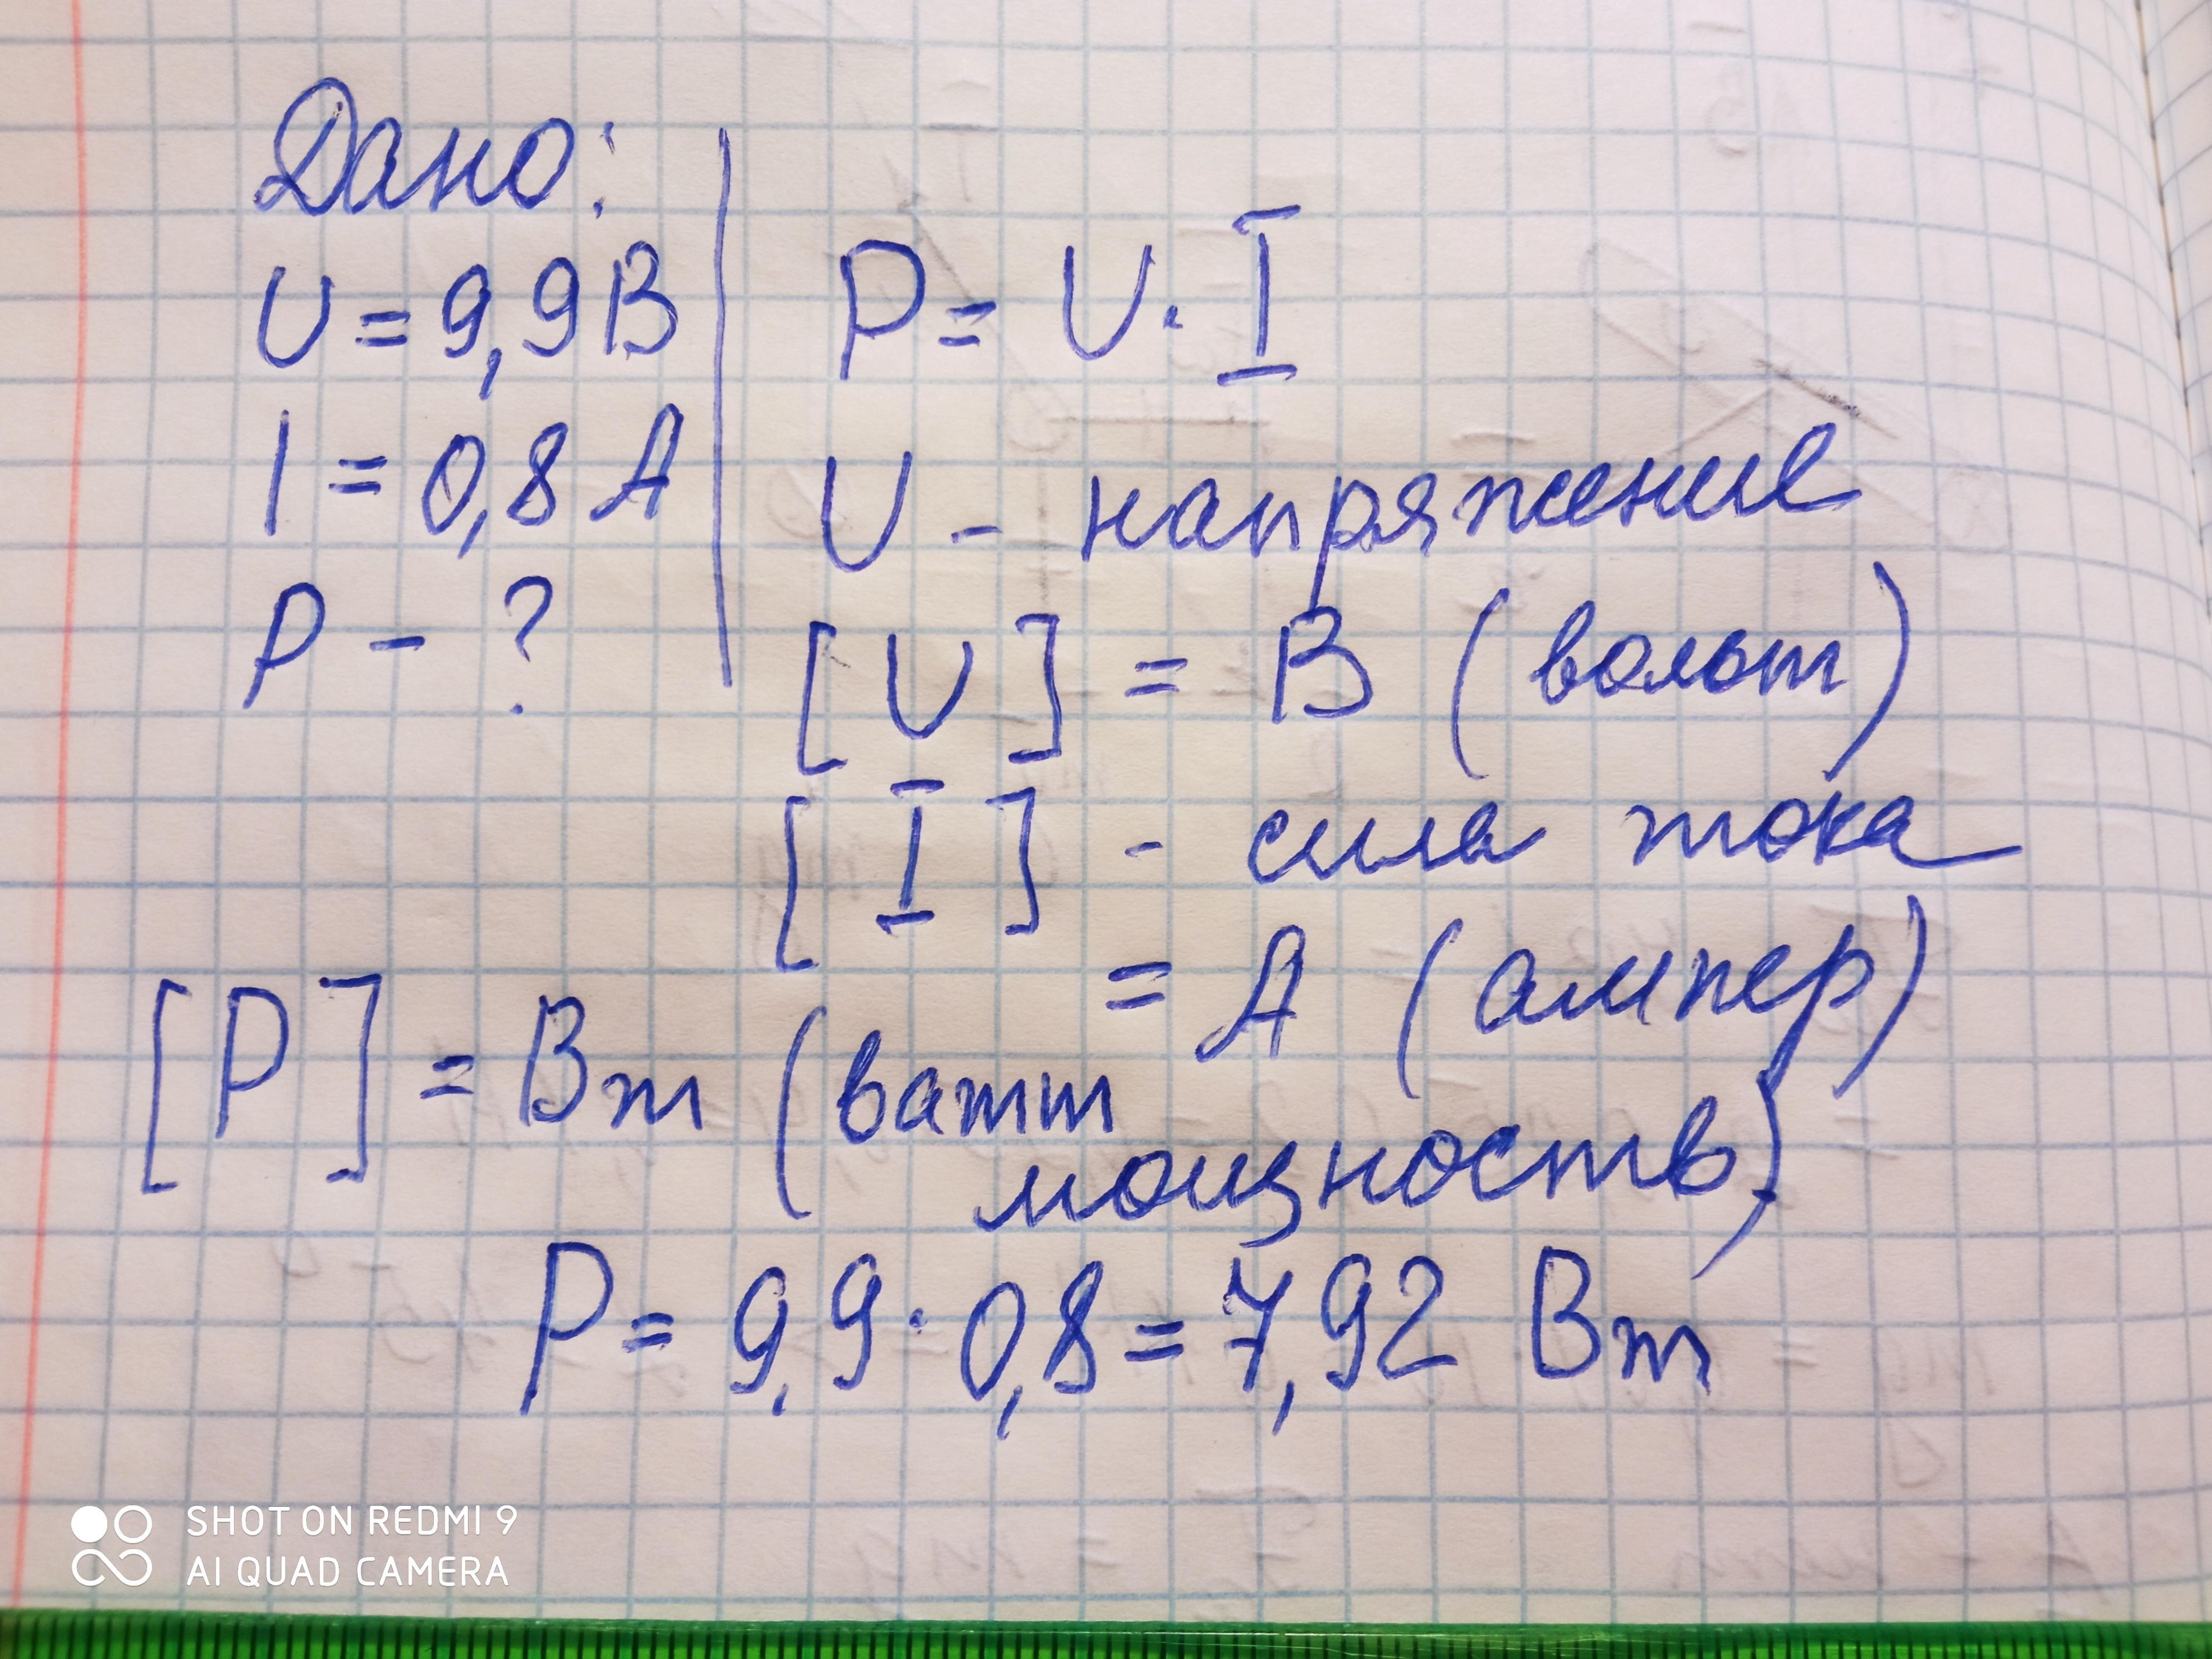 Дано:
U = 9,9 В
I = 0,8 А
P - ?
P = U · I
U - напряжение
[U] = В (вольт)
[I] - сила тока
= А (ампер)
[P] = Вт (ватт
мощность)
P = 9,9 · 0,8 = 7,92 Вт
SHOT ON REDMI 9
AI QUAD CAMERA